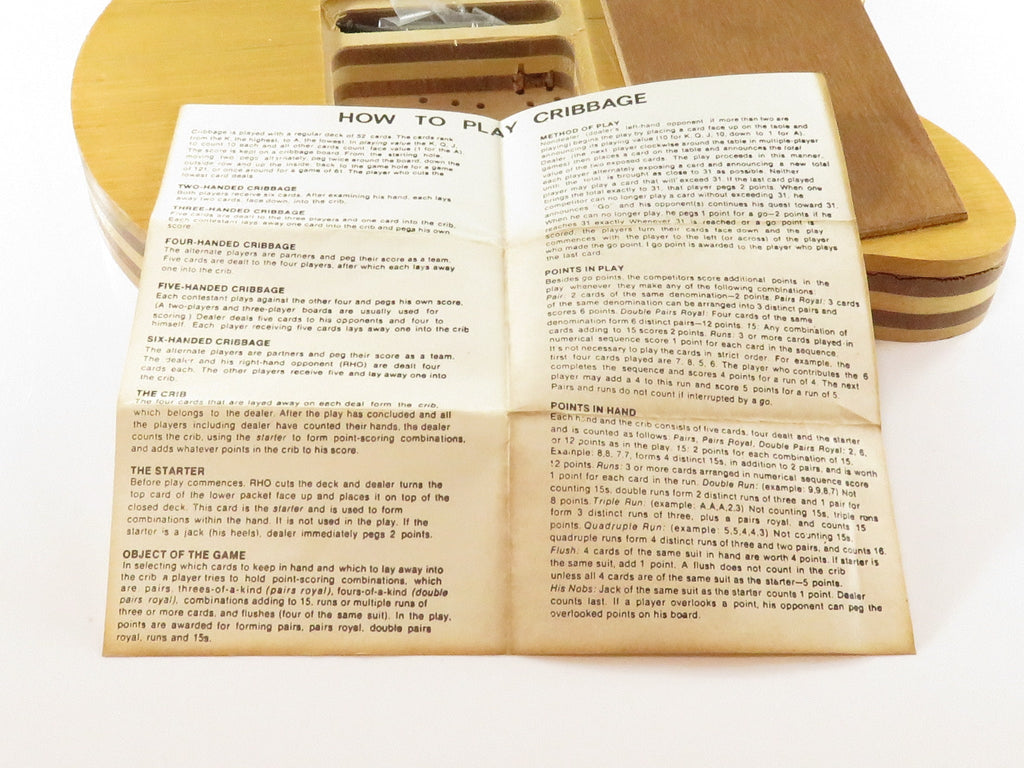 HOW TO PLAY CRIBBAGE
Cribbage is played with a regular deck of 52 cards. The cards rank
from the K, the highest, to A, the lowest. In playing value the K, Q, J,
10 count 10 each and all other cards count face value (1 for the A).
The score is kept on a cribbage board. From the starting hole,
moving two pegs alternately, peg twice around the board, down the
outside row and up the inside, back to the game hole for a game
of 121, or once around for a game of 61. The player who cuts the
lowest card deals.
TWO-HANDED CRIBBAGE
Both players receive six cards. After examining his hand, each lays
away two cards, face down, into the crib.
THREE-HANDED CRIBBAGE
Five cards are dealt to the three players and one card into the crib.
Each contestant lays away one card into the crib and pegs his own
score.
FOUR-HANDED CRIBBAGE
The alternate players are partners and peg their score as a team.
Five cards are dealt to the four players, after which each lays away
one into the crib.
FIVE-HANDED CRIBBAGE
Each contestant plays against the other four and pegs his own score.
(A two-players and three-player boards are usually used for
scoring.) Dealer deals five cards to his opponents and four to
himself. Each player receiving five cards lays away one into the crib
SIX-HANDED CRIBBAGE
The alternate players are partners and peg their score as a team.
The dealer and his right-hand opponent (RHO) are dealt four
cards each. The other players receive five and lay away one into
the crib.
THE CRIB
The four cards that are layed away on each deal form the crib,
which belongs to the dealer. After the play has concluded and all
the players including dealer have counted their hands, the dealer
counts the crib, using the starter to form point-scoring combinations,
and adds whatever points in the crib to his score.
THE STARTER
Before play commences, RHO cuts the deck and dealer turns the
top card of the lower packet face up and places it on top of the
closed deck. This card is the starter and is used to form
combinations within the hand. It is not used in the play. If the
starter is a jack (his heels), dealer immediately pegs 2 points.
OBJECT OF THE GAME
In selecting which cards to keep in hand and which to lay away into
the crib a player tries to hold point-scoring combinations, which
are pairs, threes-of-a-kind (pairs royal), fours-of-a-kind (double
pairs royal), combinations adding to 15, runs or multiple runs of
three or more cards, and flushes (four of the same suit). In the play,
points are awarded for forming pairs, pairs royal, double pairs
royal, runs and 15s.
METHOD OF PLAY
Nondealer (dealer's left-hand opponent if more than two are
playing) begins the play by placing a card face up on the table and
announcing its playing value (10 for K, Q, J, 10, down to 1 for A).
dealer (the next player clockwise around the table in multiple player
games) then places a card on the table and announces the total
value of the two exposed cards. The play proceeds in this manner,
each player alternately exposing a card and announcing a new total
until the total is brought as close to 31 as possible. Neither
player may play a card that will exceed 31. If the last card played
brings the total exactly to 31, that player pegs 2 points. When one
competitor can no longer play a card without exceeding 31, he
announces "Go" and his opponent(s) continues his quest toward 31.
When he can no longer play, he pegs 1 point for a go—2 points if he
reaches 31 exactly. Whenever 31 is reached or a go point is
scored, the players turn their cards face down and the play
commences with the player to the left (or across) of the player
who made the go point. 1 go point is awarded to the player who plays
the last card.
POINTS IN PLAY
Besides go points, the competitors score additional points in the
play whenever they make any of the following combinations:
Pair: 2 cards of the same denomination—2 points. Pairs Royal: 3 cards
of the same denomination can be arranged into 3 distinct pairs and
scores 6 points. Double Pairs Royal: Four cards of the same
denomination form 6 distinct pairs—12 points. 15: Any combination of
cards adding to 15 scores 2 points. Runs: 3 or more cards played in
numerical sequence score 1 point for each card in the sequence.
It's not necessary to play the cards in strict order. For example, the
first four cards played are 7, 8, 5, 6. The player who contributes the 6
completes the sequence and scores 4 points for a run of 4. The next
player may add a 4 to this run and score 5 points for a run of 5.
Pairs and runs do not count if interrupted by a go.
POINTS IN HAND
Each hand and the crib consists of five cards, four dealt and the starter
and is counted as follows: Pairs, Pairs Royal, Double Pairs Royal: 2, 6,
or 12 points as in the play. 15: 2 points for each combination of 15.
Example: 8,8, 7,7, forms 4 distinct 15s, in addition to 2 pairs, and is worth
12 points. Runs: 3 or more cards arranged in numerical sequence score
1 point for each card in the run. Double Run: (example: 9,9,8,7) Not
counting 15s, double runs form 2 distinct runs of three and 1 pair for
8 points. Triple Run: (example: A,A,A,2,3) Not counting 15s, triple runs
form 3 distinct runs of three, plus a pairs royal, and counts 15
points. Quadruple Run: (example: 5,5,4,4,3) Not counting 15s,
quadruple runs form 4 distinct runs of three and two pairs, and counts 16.
Flush: 4 cards of the same suit in hand are worth 4 points. If starter is
the same suit, add 1 point. A flush does not count in the crib
unless all 4 cards are of the same suit as the starter—5 points.
His Nobs: Jack of the same suit as the starter counts 1 point. Dealer
counts last. If a player overlooks a point, his opponent can peg the
overlooked points on his board.